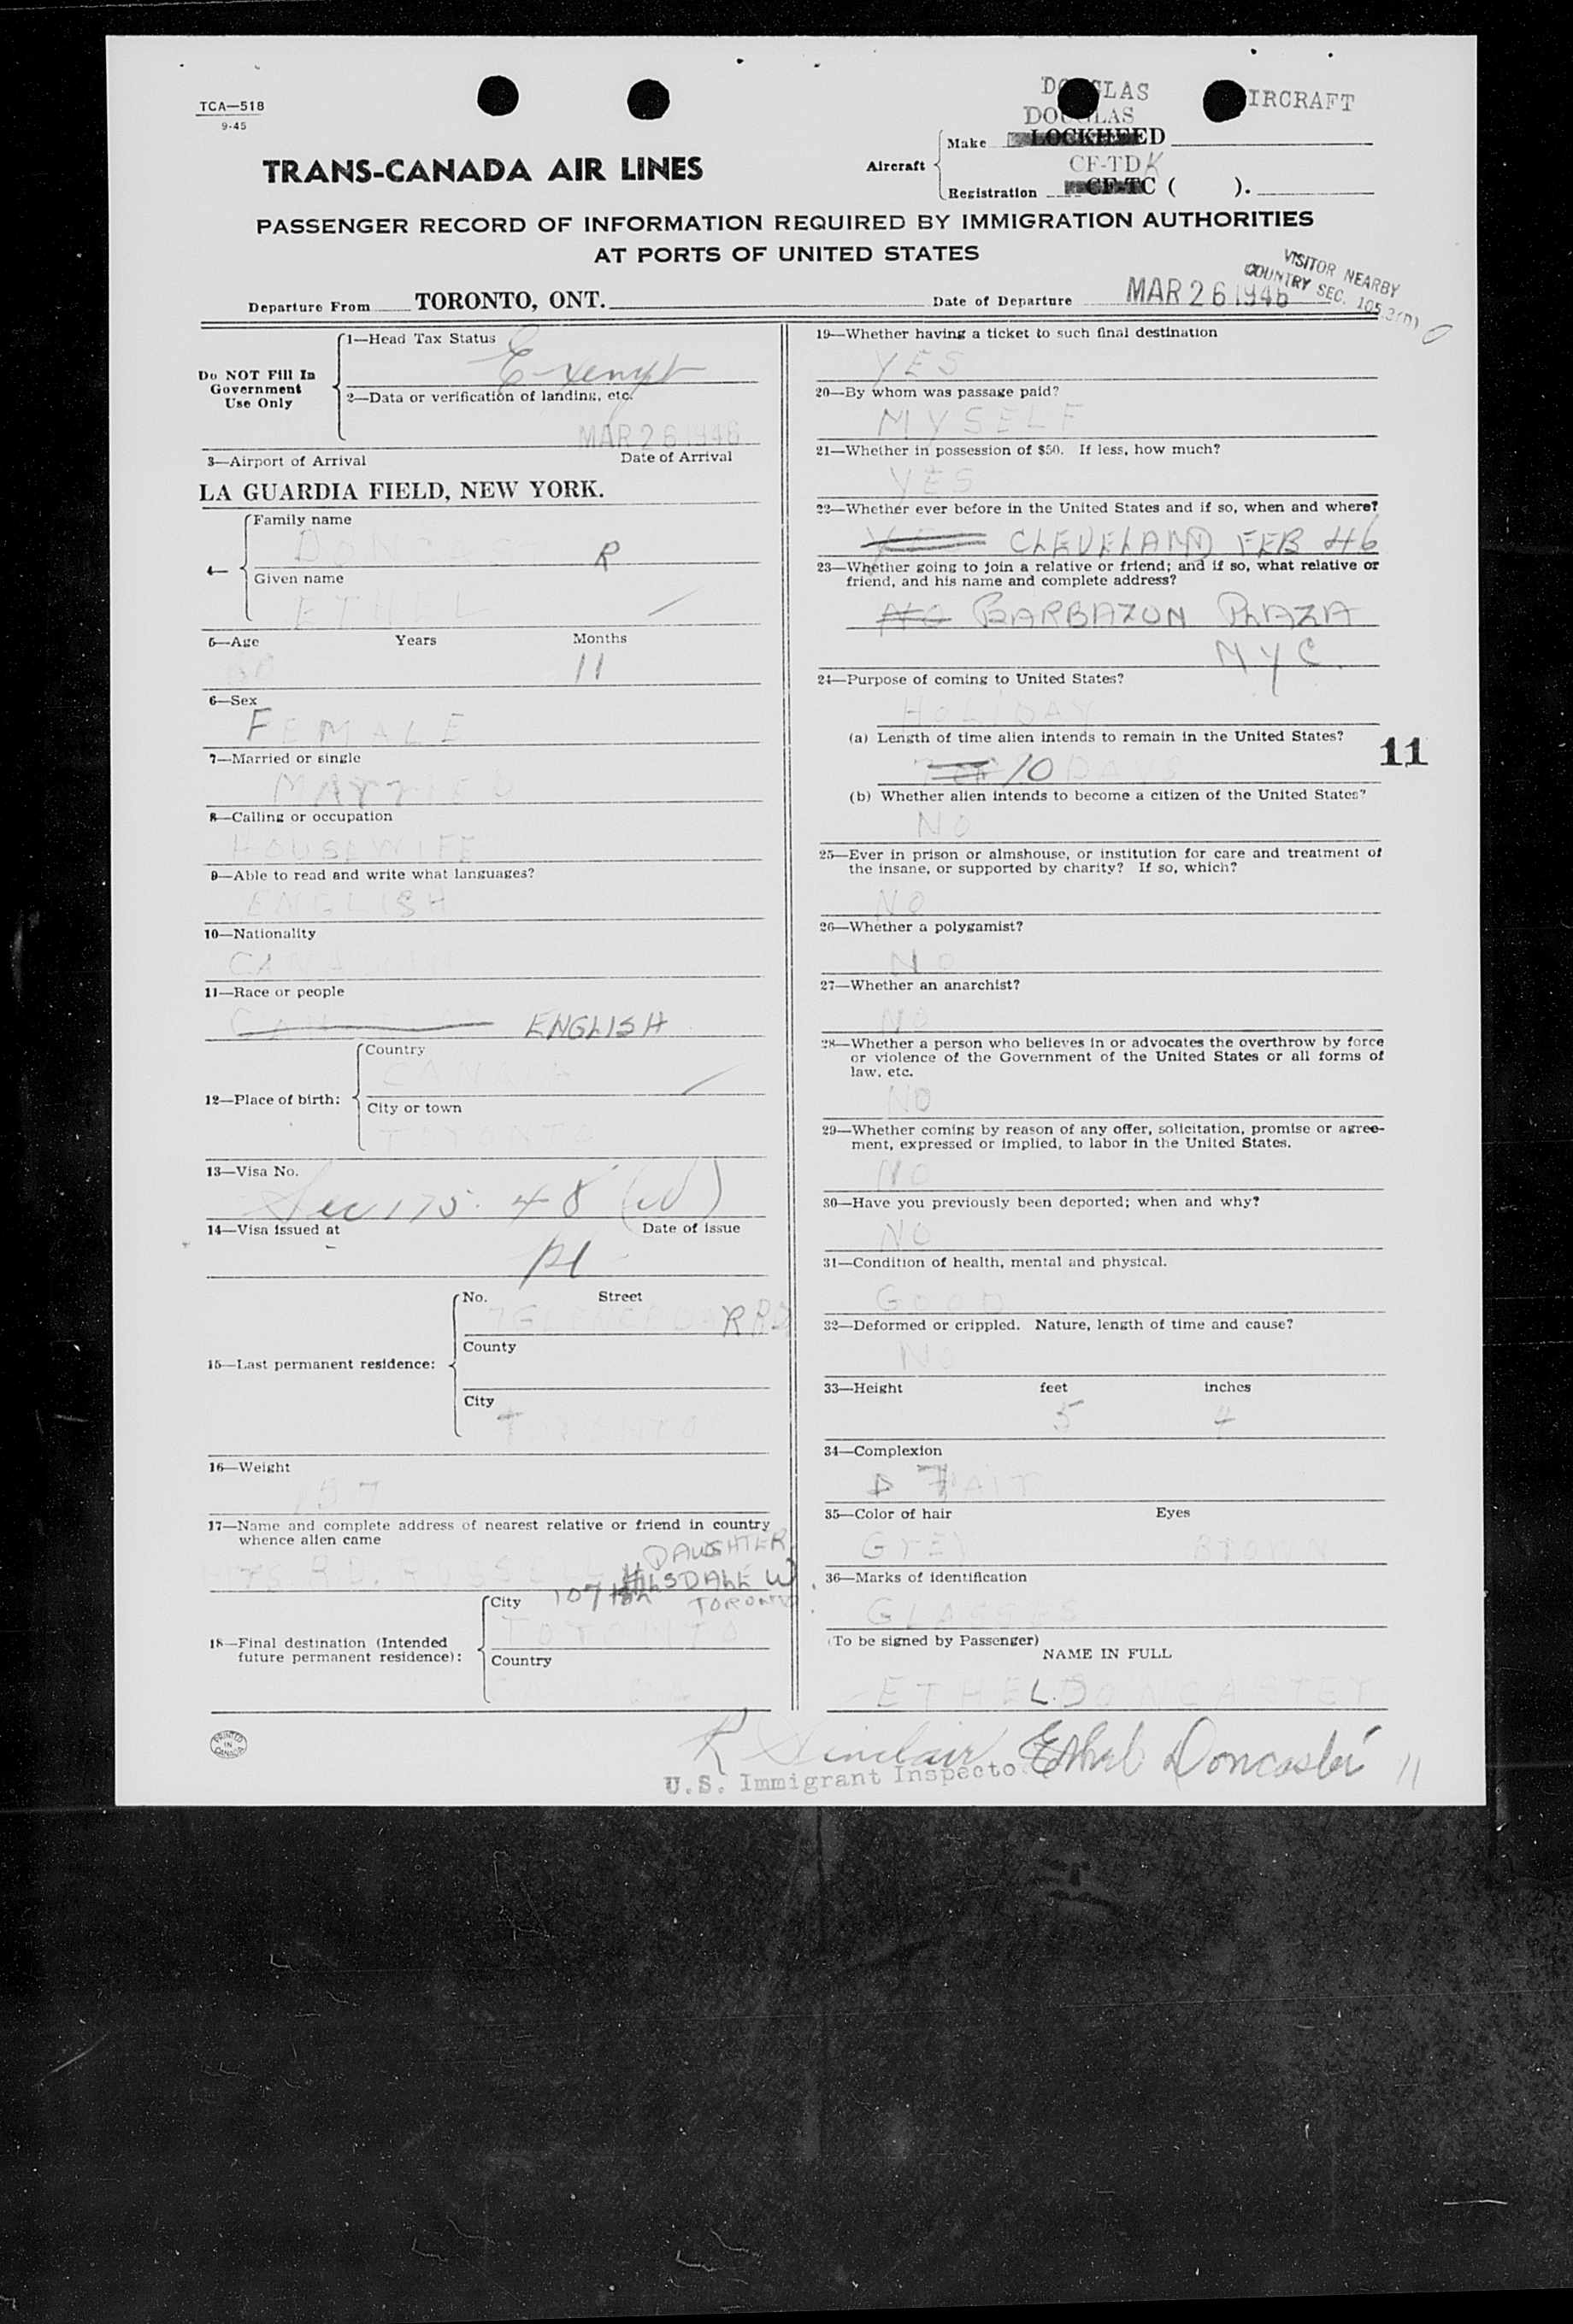 TCA—518
9-45
DOUGLAS AIRCRAFT
DOUGLAS
TRANS-CANADA AIR LINES
Aircraft
Make LOCKHEED
CF-TDK
Registration CF-TC ( ).
PASSENGER RECORD OF INFORMATION REQUIRED BY IMMIGRATION AUTHORITIES
AT PORTS OF UNITED STATES
VISITOR NEARBY
COUNTRY SEC.
Departure From TORONTO, ONT. Date of Departure MAR 26 1946
Do NOT Fill In
Government
Use Only
1—Head Tax Status
Exempt
2—Data or verification of landing, etc.
MAR 26 1946
3—Airport of Arrival Date of Arrival
LA GUARDIA FIELD, NEW YORK.
4—
Family name
DONCASTER
Given name
ETHEL
5—Age Years Months
11
6—Sex
FEMALE
7—Married or single
MARRIED
8—Calling or occupation
HOUSEWIFE
9—Able to read and write what languages?
ENGLISH
10—Nationality
CANADIAN
11—Race or people
ENGLISH
12—Place of birth:
Country
CANADA
City or town
TORONTO
13—Visa No.
Sec 175. 48 (d)
14—Visa issued at Date of issue
15—Last permanent residence:
No. Street
RD
County
City
TORONTO
16—Weight
137
17—Name and complete address of nearest relative or friend in country
whence alien came
DAUGHTER
MRS. R.D. RUSSELL HILSDALE W
107 TORONTO
18—Final destination (Intended
future permanent residence):
City
TORONTO
Country
CANADA
PRINTED
IN
CANADA
19—Whether having a ticket to such final destination
YES
20—By whom was passage paid?
MYSELF
21—Whether in possession of $50. If less, how much?
YES
22—Whether ever before in the United States and if so, when and where?
YES CLEVELAND FEB 46
23—Whether going to join a relative or friend; and if so, what relative or
friend, and his name and complete address?
NO BARBAZON PLAZA
NYC.
24—Purpose of coming to United States?
HOLIDAY
(a) Length of time alien intends to remain in the United States?
10 DAYS
11
(b) Whether alien intends to become a citizen of the United States?
NO
25—Ever in prison or almshouse, or institution for care and treatment of
the insane, or supported by charity? If so, which?
NO
26—Whether a polygamist?
NO
27—Whether an anarchist?
NO
28—Whether a person who believes in or advocates the overthrow by force
or violence of the Government of the United States or all forms of
law, etc.
NO
29—Whether coming by reason of any offer, solicitation, promise or agree-
ment, expressed or implied, to labor in the United States.
NO
30—Have you previously been deported; when and why?
NO
31—Condition of health, mental and physical.
GOOD
32—Deformed or crippled. Nature, length of time and cause?
NO
33—Height feet inches
5 4
34—Complexion
FAIR
35—Color of hair Eyes
GREY BROWN
36—Marks of identification
GLASSES
(To be signed by Passenger)
NAME IN FULL
ETHEL DONCASTER
R Sinclair Ethel Doncaster 11
U.S. Immigrant Inspector